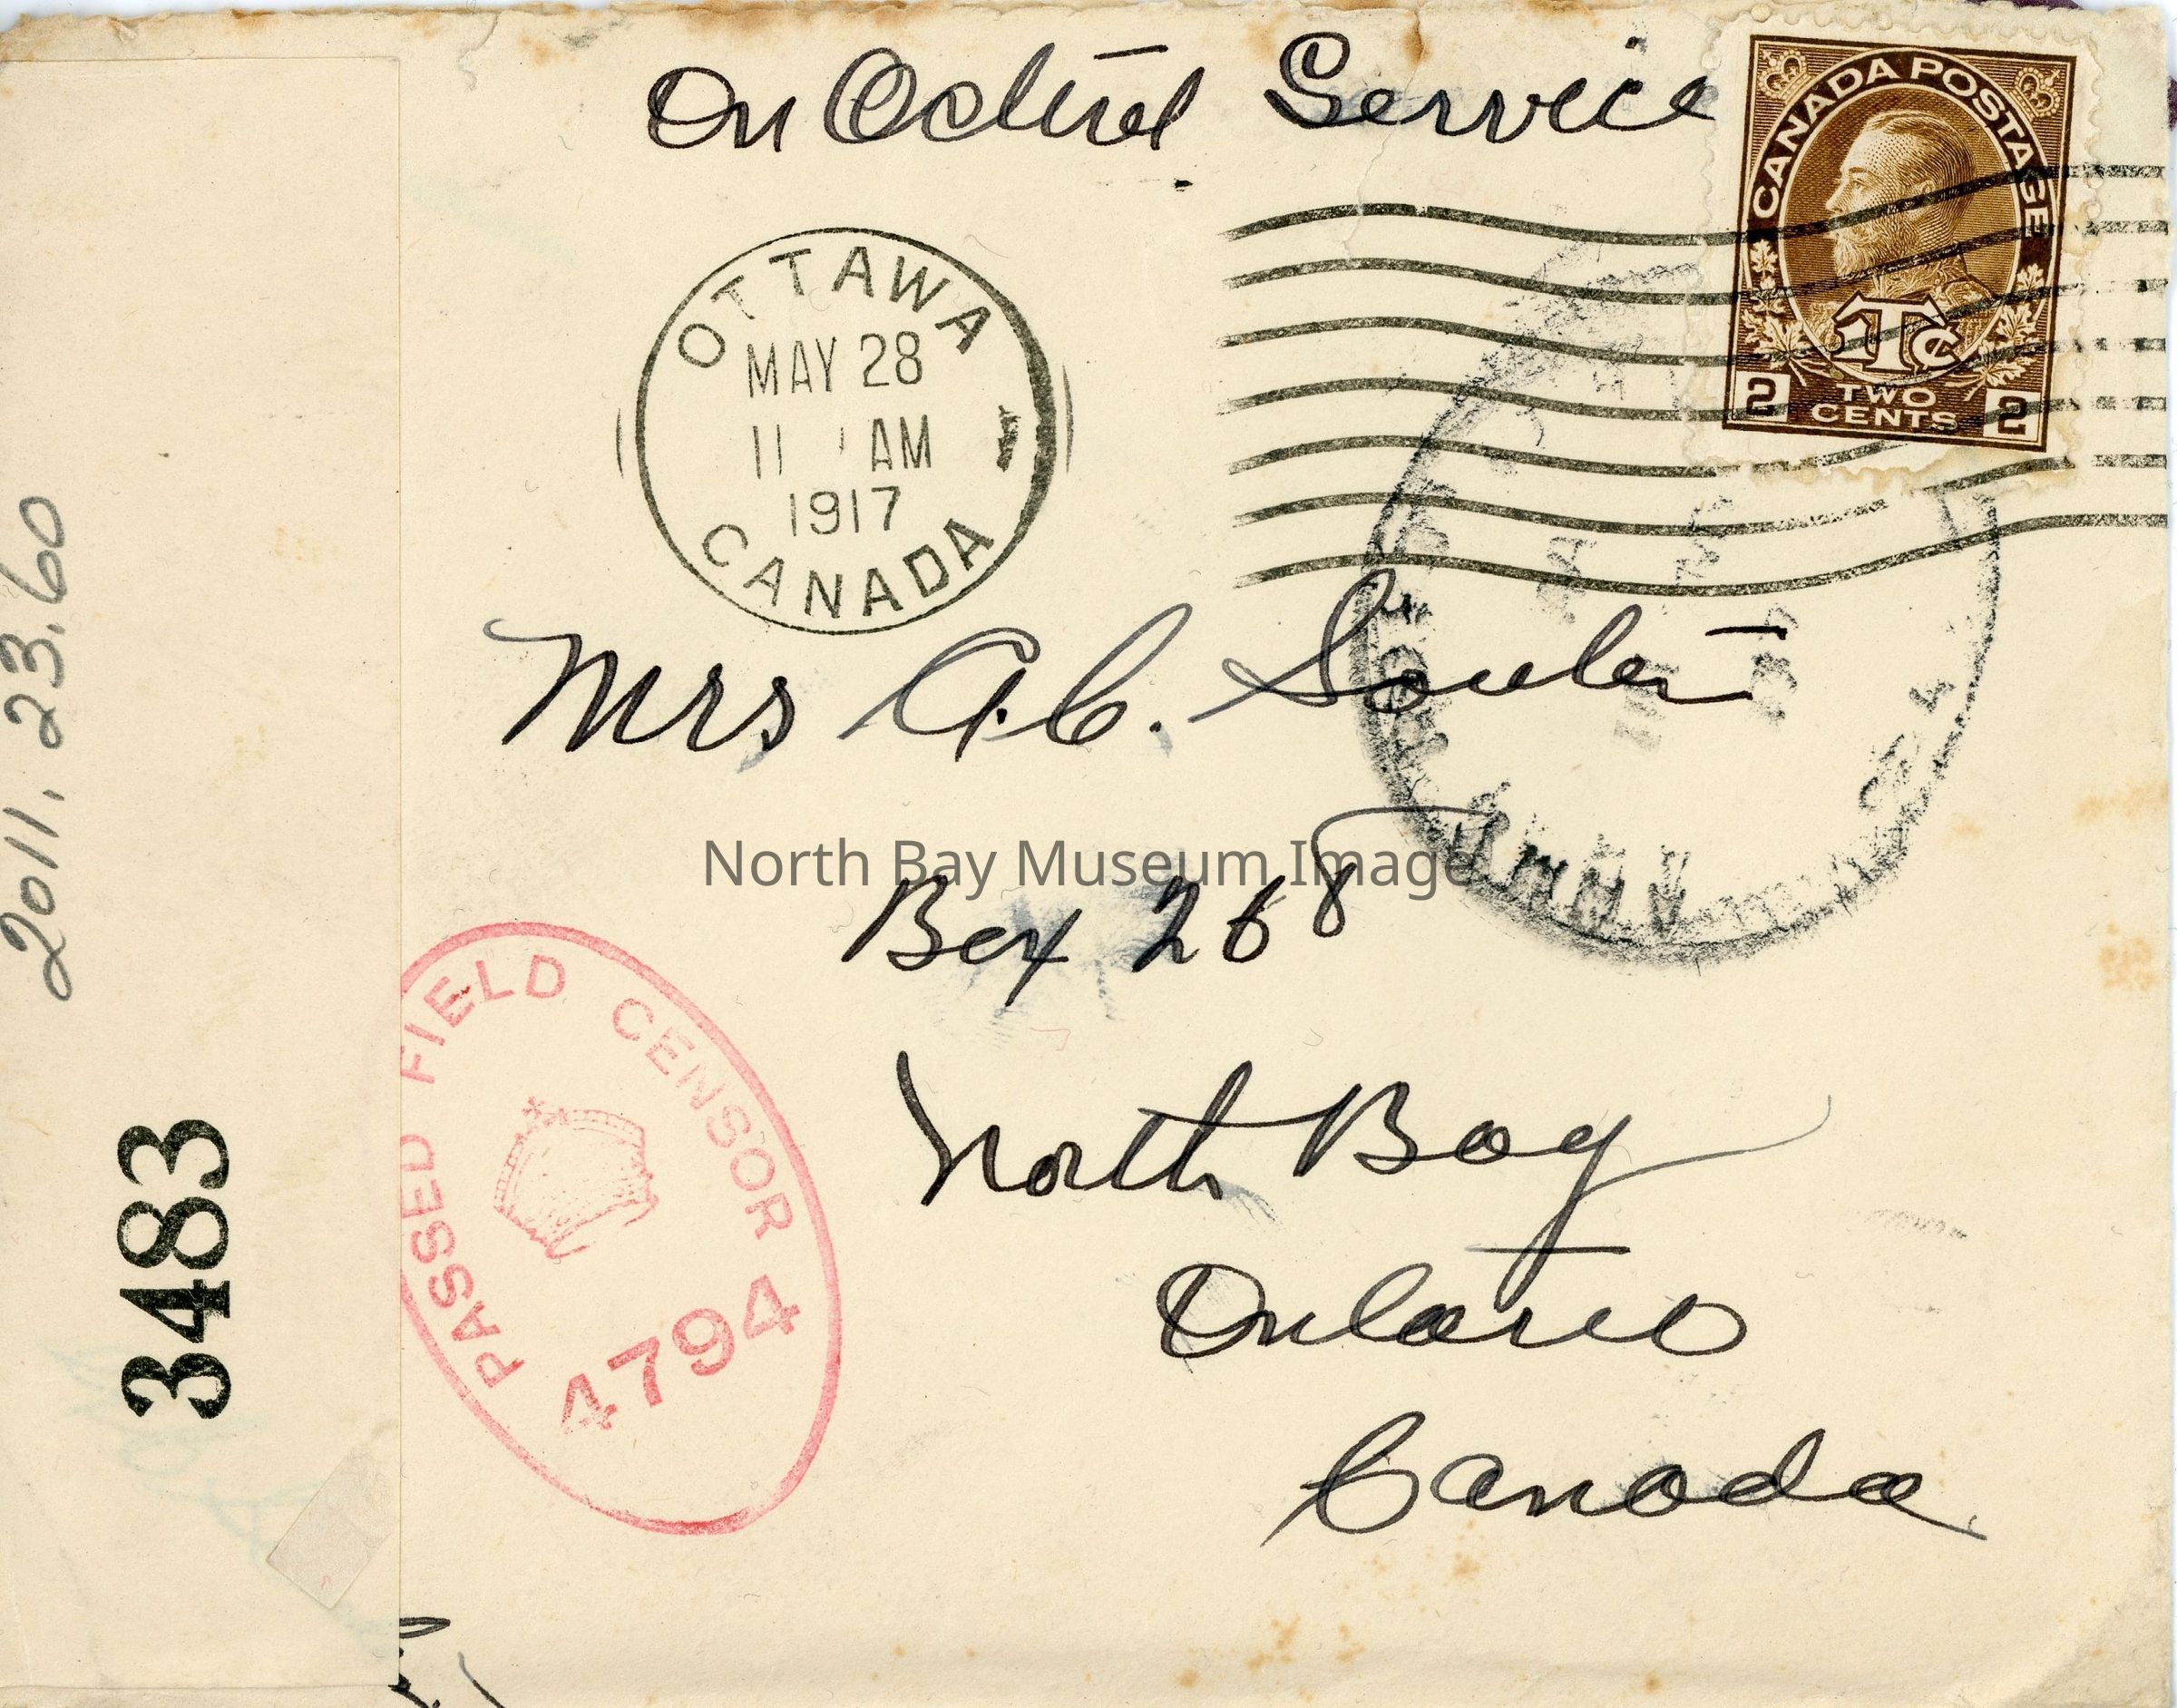 On Active Service
CANADA POSTAGE
1Tc
2 TWO CENTS 2
OTTAWA
MAY 28
11 AM
1917
CANADA
Mrs A.C. Souter
North Bay Museum Image
Box 268
North Bay
Ontario
Canada
PASSED FIELD CENSOR
4794
3483
2011.23.60